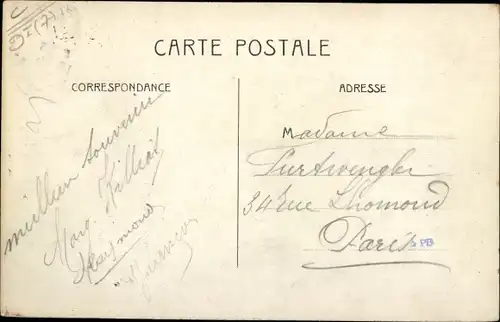 CARTE POSTALE
CORRESPONDANCE
ADRESSE
meilleur souvenir
Marc
Raymond
Madame
Furtwengler
34 rue Lhomond
Paris